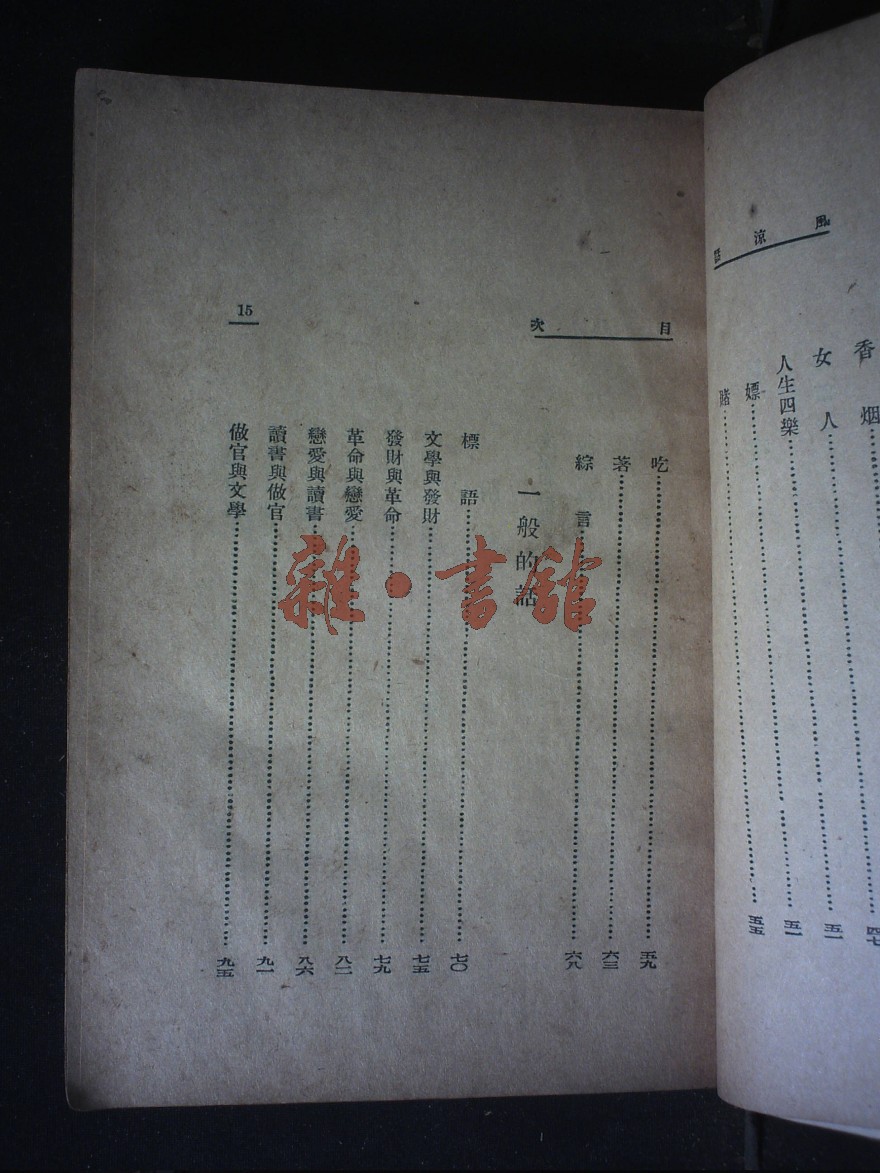 風涼話
香烟 四七
女人 五一
人生四樂 五一
嫖 五五
賭
目次
吃 五九
著 六三
綜言 六八
一般的話
標語 七〇
文學與發財 七五
發財與革命 七九
革命與戀愛 八二
戀愛與讀書 八六
讀書與做官 九一
做官與文學 九五
15
雜·書館